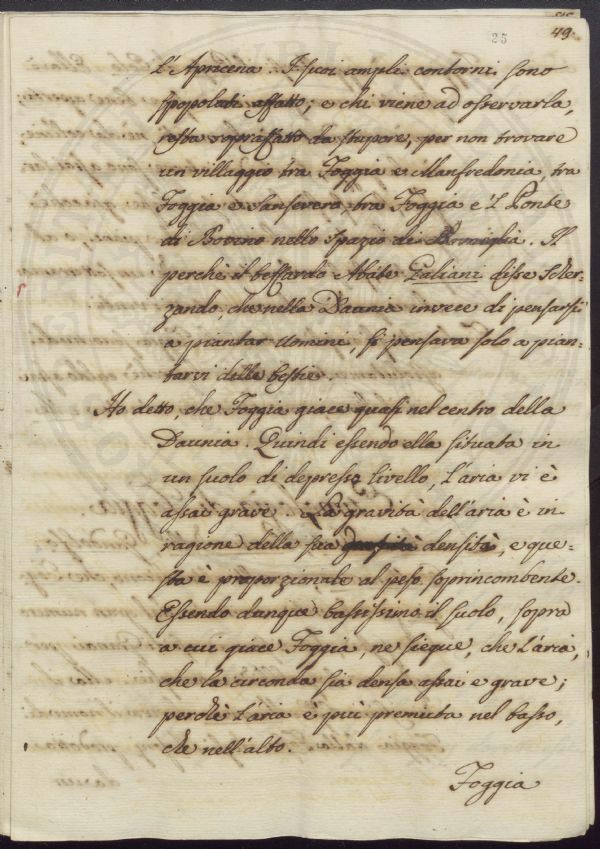 25
49.
L'Apricena. I suoi ampli contorni sono
spopolati affatto; e chi viene ad osservarla,
resta soprafatto da stupore, per non trovare
un villaggio tra Foggia e Manfredonia, tra
Foggia e Sansevero, tra Foggia e 'l Ponte
di Bovino nello spazio di miglia. Il
perchè il beffardo Abate Galiani disse scher-
zando, che nella Daunia invece di pensarsi
a piantar uomini, si pensava solo a pian-
tarvi delle bestie.
Ho detto, che Foggia giace quasi nel centro della
Daunia. Quindi essendo ella situata in
un suolo di depresso livello, l'aria vi è
assai grave. La gravità dell'aria è in
ragione della sua densità, e que-
sta è proporzionale al peso soprincombente.
Essendo dunque bassissimo il suolo, sopra
a cui giace Foggia, ne siegue, che l'aria,
che la circonda sia densa assai e grave;
perchè l'aria è più premuta nel basso,
che nell'alto.
Foggia